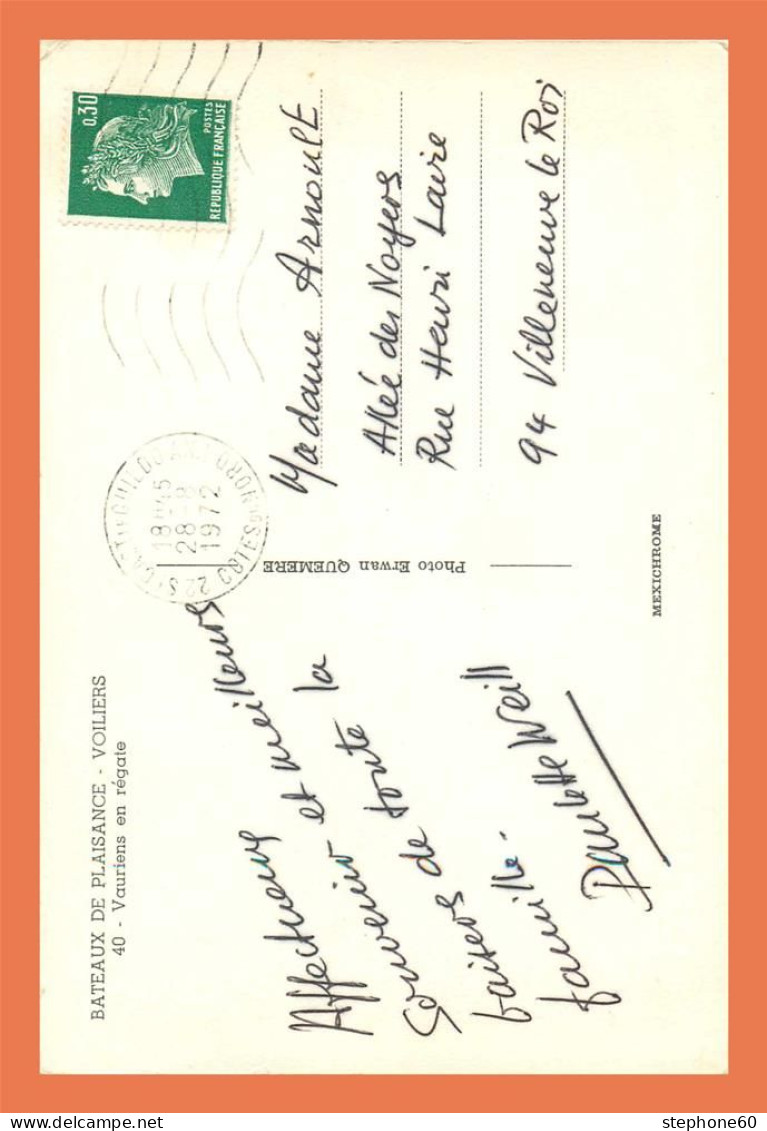 BATEAUX DE PLAISANCE - VOILIERS
40 - Vauriens en régate
Affectueux
Souvenir et meilleurs
baisers de toute la
famille -
Paulette Weill
Photo Erwan QUEMERE
MEXICHROME
0,30
POSTES
REPUBLIQUE FRANÇAISE
18H45
28-8
1972
22 ST CAST LE GUILDO COTES DU NORD
Madame Arnoult
Allée des Noyers
Rue Henri Laire
94 Villeneuve le Roi
stephone60